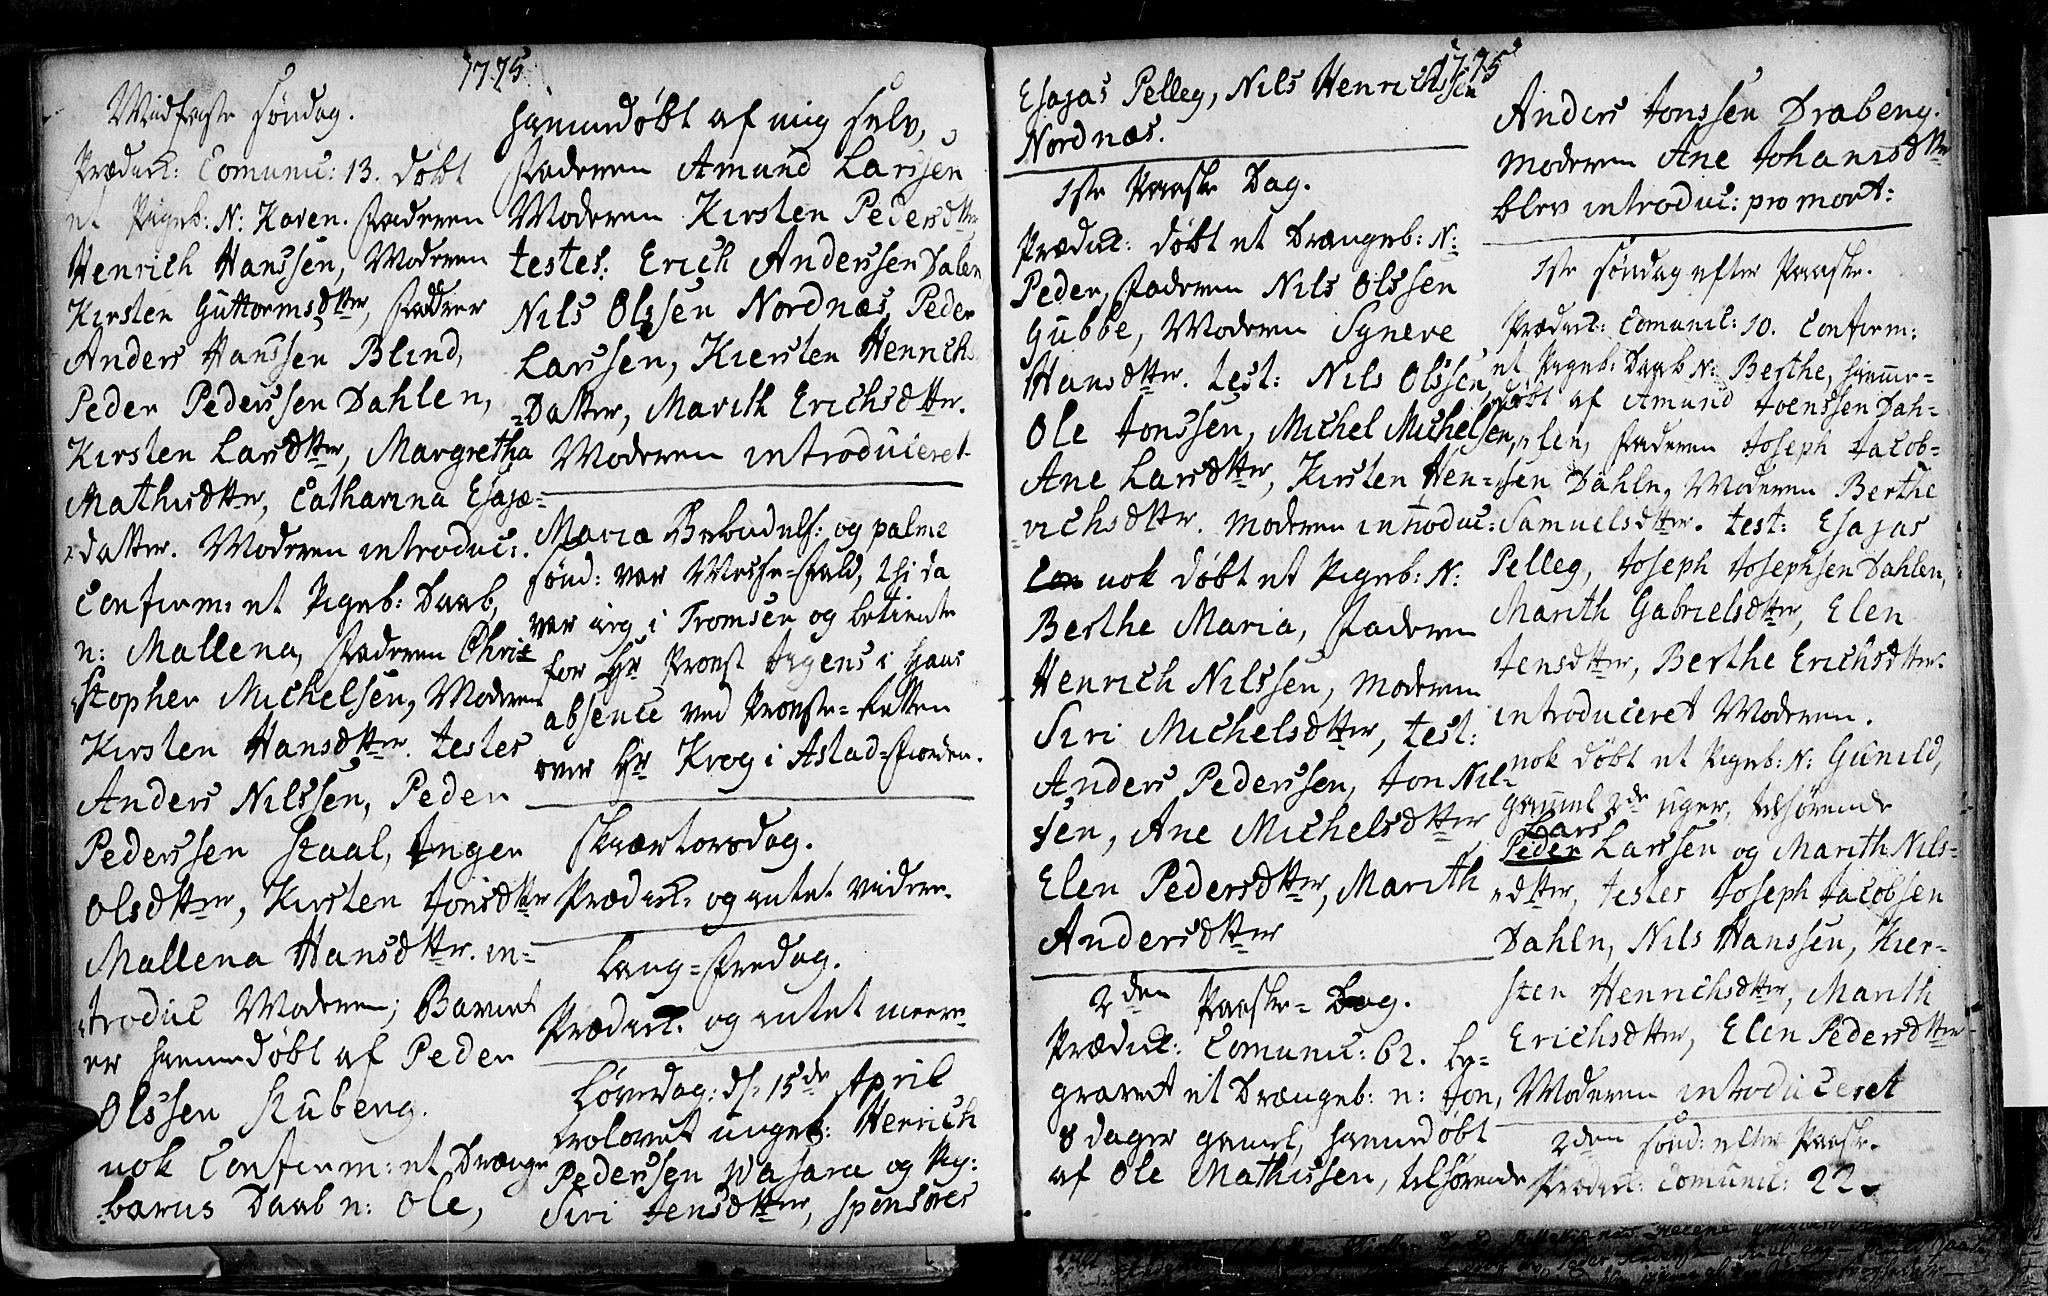 1775
Midfaste Søndag.
Prædict: Comunic: 13. døbt
et Pigeb: N: Karen. Faderen
Henrich Hanssen, Moderen
Kirsten Guttormsdtter, Faddrer
Anders Hanssen Blind,
Peder Pederssen Dahlen,
Kirsten Larsdtter, Margretha
Mathisdtter, Catharina Esajæ=
=datter. Moderen introduc:
Confirm: et Pigeb: Daab,
n: Mallena, Faderen Chri=
=stopher Michelsen, Moderen
Kirsten Hansdtter. testes
Anders Nilssen, Peder
Pederssen Staal, Inger
Olsdtter, Kirsten Jonsdtter
Mallena Hansdtter. in=
=troduc Moderen; Barnet
er hiemmedøbt af Peder
Olssen Kubeng.
nok Confirm: et Drænge
=barns Daab n: Ole,
hiemmedøbt af mig selv,
Faderen Amund Larssen
Moderen Kirsten Pedersdtter,
testes: Erich Anderssen Dalen
Nils Olssen Nordnæs, Peder
Larssen, Kiersten Henrichs
=Datter, Marith Erichsdtter.
Moderen introduceret
Maria Bebudels: og palme
Sønd: var Messe=Fald, thi da
var jeg i Tromsen og betiente
for Hr Provst Jrgens i hans
absence ved Provste=Retten
over Hr Krog i Astad=Fiorden.
Skiærtorsdag.
Prædict: og intet videre.
Lang=Fredag.
Prædict: og intet meere
Løverdag: d: 15de April
trolovet ungk: Henrich
Pederssen Wasara og Pig:
Siri Jensdtter, sponsores
1775
Esajas Pelleg, Nils Henrichssen
Nordnæs.
1ste Paaske Dag.
Prædict: døbt et Drængeb: N:
Peder, Faderen Nils Olssen
Gubbe, Moderen Syneve
Hansdtter. test: Nils Olssen,
Ole Jonssen, Michel Michelsen,
Ane Larsdtter, Kirsten Hen=
=richsdtter. Moderen introduc:
nok døbt et Pigeb: N:
Berthe Maria, Faderen
Henrich Nilssen, Moderen
Siri Michelsdtter, test:
Anders Pederssen, Jon Nil=
sen, Ane Michelsdtter
Elen Pedersdtter, Marith
Andersdtter
2den Paaske=Dag.
Prædict: Comunic: 62. be=
gravet et Drængeb: n: Jon,
8 dager gaml, hiemmedøbt
af Ole Mathissen, tilhørende
Anders Jonssen Drabeng.
Moderen Ane Johanisdtter
blev introduc: pro mort:
1ste Søndag efter Paaske.
Prædict: Comunic: 10. Confirm:
et Pigeb: Daab N: Berthe, hiemme=
døbt af Amund Joenssen Dah=
=len, Faderen Joseph Jacob=
=sen Dahln, Moderen Berthe
Samuelsdtter. test: Esajas
Pelleg, Joseph Josephsen Dahlen,
Marith Gabrielsdtter, Elen
Jensdtter, Berthe Erichsdtter.
introduceret Moderen.
nok døbt et Pigeb: N: Gunild,
gammel 2de uger, tilhørende
Lars
Peder Larssen og Marith Nils=
=dtter, testes Joseph Jacobsen
Dahln, Nils Hanssen, Kier=
sten Henrichsdtter, Marith
Erichsdtter, Elen Pedersdtter
Moderen introduceret
2den Sønd: efter Paaske.
Prædict: Comunic: 22.